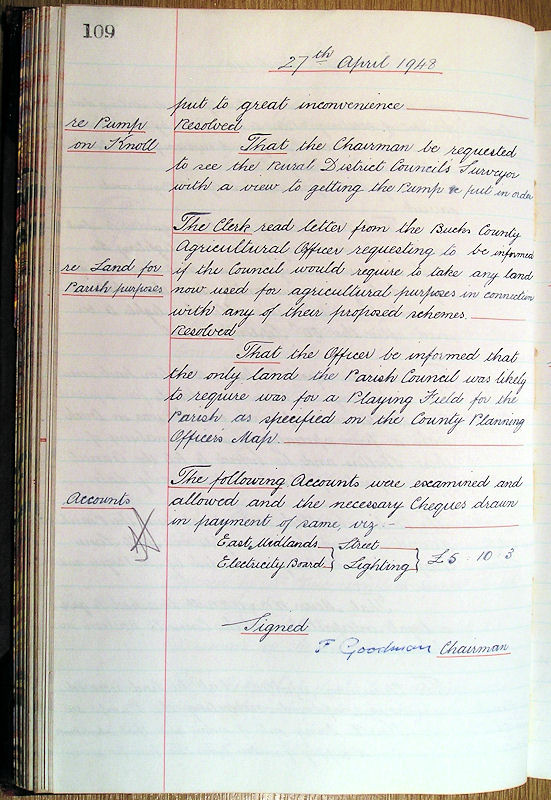 109
27th April 1948
put to great inconvenience
re Pump
Resolved
on Knoll
That the Chairman be requested
to see the Rural District Councils Surveyor
with a view to getting the Pump & put in order
The Clerk read letter from the Bucks County
Agricultural Officer requesting to be informed
re Land for
if the Council would require to take any land
Parish purposes
now used for agricultural purposes in connection
with any of their proposed schemes.
Resolved
That the Officer be informed that
the only land the Parish Council was likely
to require was for a Playing Field for the
Parish as specified on the County Planning
Officers Map.
The following Accounts were examined and
Accounts
allowed and the necessary Cheques drawn
in payment of same, viz:-
East Midlands } Street
Electricity Board } Lighting } £5 . 10 . 3
Signed
F Goodman Chairman